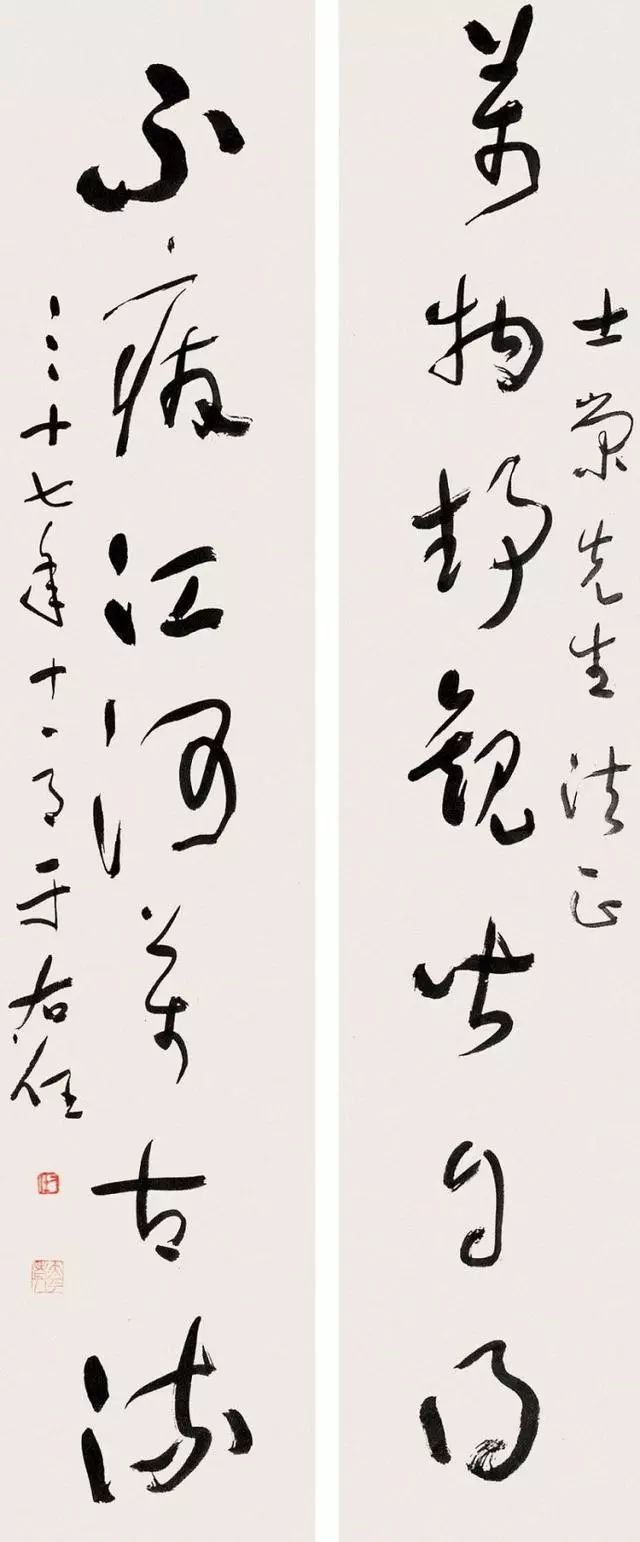 士榮先生法正
萬物靜觀皆自得
不廢江河萬古流
三十七年十一月于右任